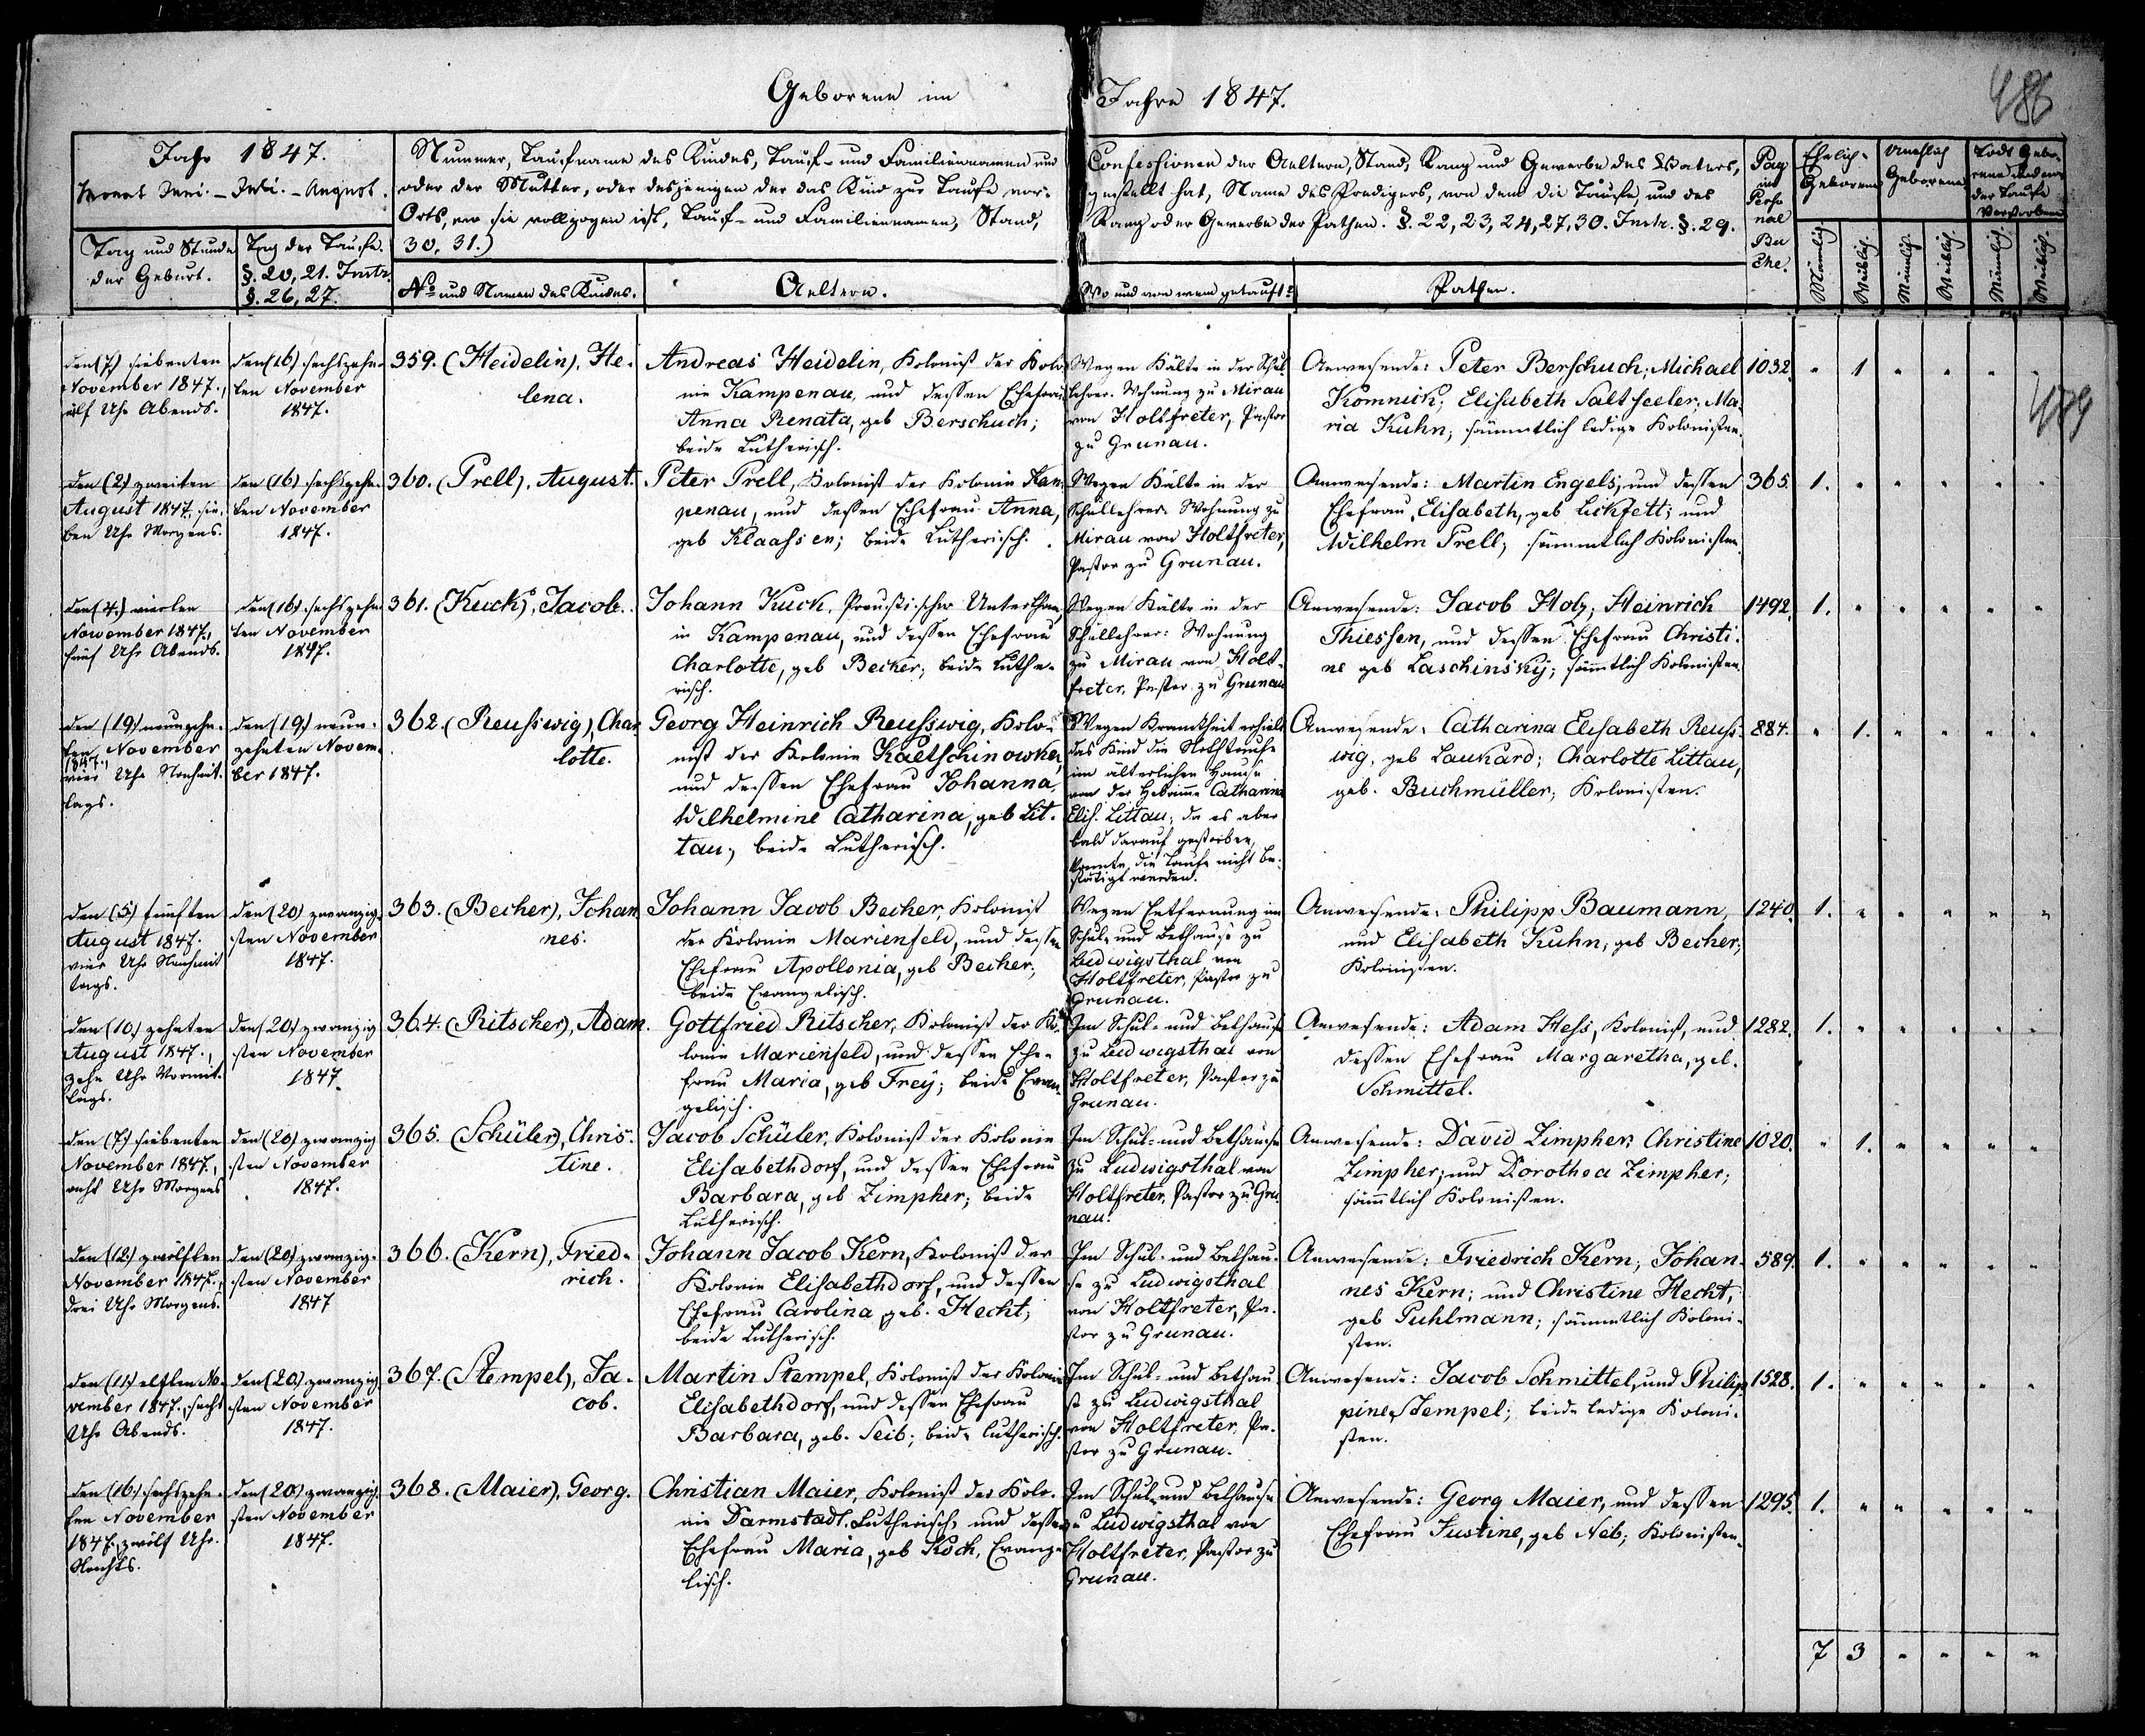 Geborene im Jahre 1847.
486
Jahr 1847.
Monat Juni. - Juli. - August.
Tag und Stunde
der Geburt.
Tag der Taufe.
§. 20, 21. Instr.
§. 26, 27.
Nummer, Taufname des Kindes, Tauf- und Familiennamen und
oder der Mutter, oder desjenigen der das Kind zur Taufe vor-
Orts, wo sie vollzogen ist, Tauf- und Familiennamen, Stand,
30, 31.)
No und Namen des Kindes.
Aeltern.
Confessionen der Aeltern, Stand, Rang und Gewerbe des Vaters,
gestellt hat, Name des Predigers, von dem die Taufe, und des
Rang oder Gewerbe der Pathen. §. 22, 23, 24, 27, 30. Instr. §. 29.
Wo und von wem getauft?
Pathen.
Pag
im
Perso
nal
Bu
che.
Ehelich-
Geborene
Unehelich
Geborene
Todt Gebo-
rene und vor
der Taufe
Verstorbene
Männlich.
Weiblich.
Männlich.
Weiblich.
Männlich.
Weiblich.
den (7.) siebenten
November 1847.,
eilf Uhr Abends.
den (16) sechszehn-
ten November
1847.
359. (Heidelin), He-
lena.
Andreas Heidelin, Kolonist der Kolo
nie Kampenau, und dessen Ehefrau
Anna Renata, geb Berschuch;
beide Lutherisch.
Wegen Kälte in der Schul
lehrer. Wohnung zu Mirau
von Holtfreter, Pastor
zu Grunau.
Anwesende: Peter Berschuch; Michael
Komnick; Elisabeth Saltseeler; Ma-
ria Kuhn; sämmtlich ledige Kolonisten.
1032. " 1 " " " "
479
den (2) zweiten
August 1847., sie-
ben Uhr Morgens.
den (16) sechszehn-
ten November
1847.
360. (Prell), August.
Peter Prell, Kolonist der Kolonie Kam-
penau, und dessen Ehefrau Anna,
geb Klaassen; beide Lutherisch.
Wegen Kälte in der
Schullehrer. Wohnung zu
Mirau von Holtfreter,
Pastor zu Grunau.
Anwesende: Martin Engels, und dessen
Ehefrau, Elisabeth, geb Lichfett; und
Wilhelm Prell; sämmtlich Kolonisten.
365. 1. " " " " "
den (4.) vierten
November 1847.,
fünf Uhr Abends.
den (16) sechszehn-
ten November
1847.
361. (Kuck), Jacob.
Johann Kuck, Preußischer Unterthan,
in Kampenau, und dessen Ehefrau
Charlotte, geb Becker; beide Luthe-
risch.
Wegen Kälte in der
Schullehrer: Wohnung
zu Mirau von Holt-
freter, Pastor zu Grunau
Anwesende: Jacob Holz; Heinrich
Thiessen, und dessen Ehefrau Christi-
ne geb Laschinsky; sämmtlich Kolonisten.
1492. 1. " " " " "
den (19) neunzehn-
ten November
1847.,
vier Uhr Nachmit-
tags.
den (19.) neun-
zehnten Novem-
ber 1847.
362. (Reusswig), Char
lotte.
Georg Heinrich Reusswig, Kolo-
nist der Kolonie Kaetschinowka,
und dessen Ehefrau Johanna,
Wilhelmine Catharina, geb Lit-
tau; beide Lutherisch.
Wegen Krankheit erhielt
das Kind die Nothtaufe
im älterlichen Hause
von der Hebamme Catharina
Elis. Littau; da es aber
bald darauf gestorben,
konnte die Taufe nicht be-
stätigt werden.
Anwesende: Catharina Elisabeth Reuss-
wig, geb Laukard; Charlotte Littau,
geb. Buchmüller; Kolonisten.
884. " 1. " " " "
den (5.) fünften
August 1847.
vier Uhr Nachmit
tags.
den (20) zwanzig
sten November
1847.
363. (Becher), Johan
nes.
Johann Jacob Becher, Kolonist
der Kolonie Marienfeld, und dessen
Ehefrau Apollonia, geb Becher;
beide Evangelisch.
Wegen Entfernung im
Schul- und Bethause zu
Ludwigsthal von
Holtfreter, Pastor zu
Grunau.
Anwesende: Philipp Baumann,
und Elisabeth Kuhn, geb Becher;
Kolonisten.
1240. 1. " " " " "
den (10.) zehnten
August 1847.,
zehn Uhr Vormit-
tags.
den (20.) zwanzig
sten November
1847.
364. (Ritscher), Adam.
Gottfried Ritscher, Kolonist der Ko-
lonie Marienfeld, und dessen Ehe-
frau Maria, geb Frey; beide Evan-
gelisch.
Im Schul- und Bethause
zu Ludwigsthal von
Holtfreter, Pastor zu
Grunau.
Anwesende: Adam Hess, Kolonist, und
dessen Ehefrau Margaretha, geb.
Schmittel.
1282. 1. " " " " "
den (7.) siebenten
November 1847.,
acht Uhr Morgens
den (20) zwanzig
sten November
1847.
365. (Schüler), Chris-
tine.
Jacob Schüler, Kolonist der Kolonie
Elisabethdorf, und dessen Ehefrau
Barbara, geb Zimpher; beide
Lutherisch.
Im Schul- und Bethause
zu Ludwigsthal von
Holtfreter, Pastor zu Gru
nau.
Anwesende: David Zimpher; Christine
Zimpher; und Dorothea Zimpher;
sämmtlich Kolonisten.
1020. " 1. " " " "
den (12.) zwölften
November 1847.,
drei Uhr Morgens.
den (20) zwanzig-
sten November
1847
366. (Kern), Fried-
rich.
Johann Jacob Kern, Kolonist der
Kolonie Elisabethdorf, und dessen
Ehefrau Carolina, geb. Hecht;
beide Lutherisch.
Im Schul- und Bethau-
se zu Ludwigsthal
von Holtfreter, Pa-
stor zu Grunau.
Anwesende: Friedrich Kern; Johan-
nes Kern; und Christine Hecht,
geb Puhlmann; sämmtlich Koloni-
sten.
589. 1. " " " " "
den (11.) elften No-
vember 1847., sechs
Uhr Abends.
den (20) zwanzig
sten November
1847.
367. (Stempel), Ja-
cob.
Martin Stempel, Kolonist der Kolonie
Elisabethdorf, und dessen Ehefrau
Barbara, geb. Seib; beide lutherisch.
Im Schul- und Bethau
se zu Ludwigsthal
von Holtfreter, Pa-
stor zu Grunau.
Anwesende: Jacob Schmittel, und Philip
pine Stempel; beide ledige Koloni-
sten.
1528. 1. " " " " "
den (16.) sechszehn-
ten November
1847., zwölf Uhr
Nachts.
den (20) zwanzig-
sten November
1847.
368. (Maier), Georg.
Christian Maier, Kolonist der Kolo-
nie Darmstadt, Lutherisch, und dessen
Ehefrau Maria, geb Koch, Evange
lisch.
Im Schul- und Bethause
zu Ludwigsthal von
Holtfreter, Pastor zu
Grunau.
Anwesende: Georg Maier, und dessen
Ehefrau Justine, geb Neb; Kolonisten.
1295. 1. " " " " "
7 3 " " " "